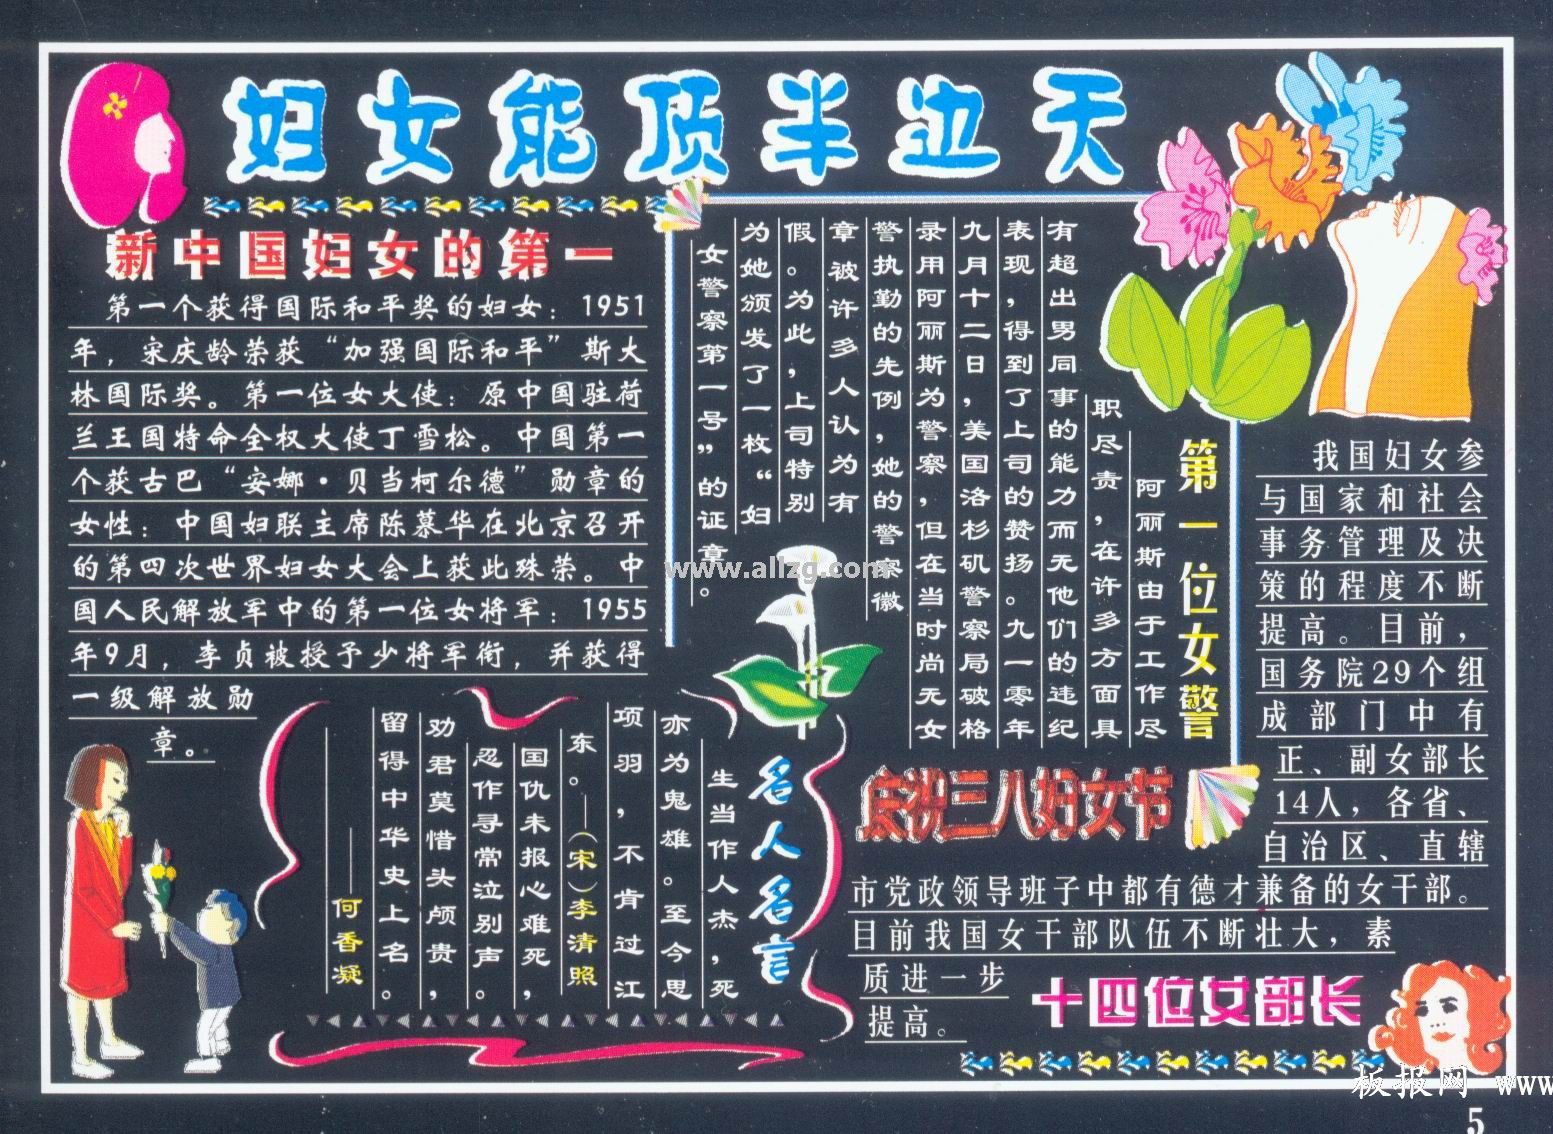 妇女能顶半边天
新中国妇女的第一
第一个获得国际和平奖的妇女：1951
年，宋庆龄荣获“加强国际和平”斯大
林国际奖。第一位女大使：原中国驻荷
兰王国特命全权大使丁雪松。中国第一
个获古巴“安娜·贝当柯尔德”勋章的
女性：中国妇联主席陈慕华在北京召开
的第四次世界妇女大会上获此殊荣。中
国人民解放军中的第一位女将军：1955
年9月，李贞被授予少将军衔，并获得
一级解放勋
章。
第一位女警
阿丽斯由于工作尽
职尽责，在许多方面具
有超出男同事的能力而无他们的违纪
表现，得到了上司的赞扬。九一零年
九月十二日，美国洛杉矶警察局破格
录用阿丽斯为警察，但在当时尚无女
警执勤的先例，她的警察徽
章被许多人认为有
假。为此，上司特别
为她颁发了一枚“妇
女警察第一号”的证章。
名人名言
生当作人杰，死
亦为鬼雄。至今思
项羽，不肯过江
东。——（宋）李清照
国仇未报心难死，
忍作寻常泣别声。
劝君莫惜头颅贵，
留得中华史上名。
——何香凝
庆祝三八妇女节
我国妇女参
与国家和社会
事务管理及决
策的程度不断
提高。目前，
国务院29个组
成部门中有
正、副女部长
14人，各省、
自治区、直辖
市党政领导班子中都有德才兼备的女干部。
目前我国女干部队伍不断壮大，素
质进一步
提高。
十四位女部长
www.allzg.com
板报网 www
5